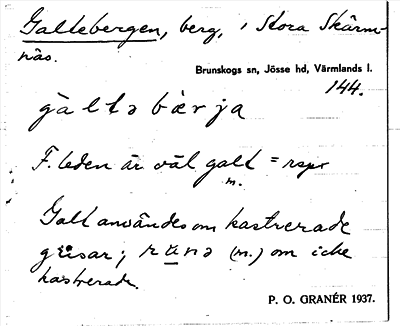 Galtebergen, berg, i Stora Skärm-
näs.
Brunskogs sn, Jösse hd, Värmlands l.
144.
gàltə bær ja
F. leden är väl galt = rspr
m.
Galt användes om kastrerade
grisar; runə (m.) om icke
kastrerade.
P. O. GRANÉR 1937.